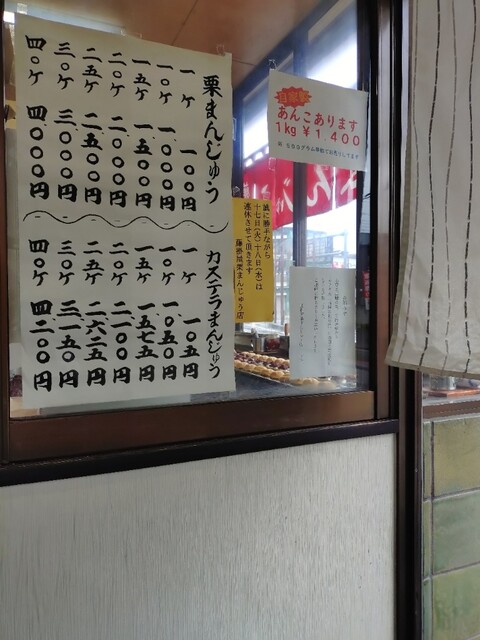 栗まんじゅう
一ケ 一〇〇円
一〇ケ 一〇〇〇円
一五ケ 一五〇〇円
二〇ケ 二〇〇〇円
二五ケ 二五〇〇円
三〇ケ 三〇〇〇円
四〇ケ 四〇〇〇円
カステラまんじゅう
一ケ 一〇五円
一〇ケ 一〇五〇円
一五ケ 一五七五円
二〇ケ 二一〇〇円
二五ケ 二六二五円
三〇ケ 三一五〇円
四〇ケ 四二〇〇円
自家製
あんこあります
1kg ¥1,400
500グラム単位でお売りしてます
誠に勝手ながら
十七日(火)十八日(水)は
連休させて頂きます
栗まんじゅう店